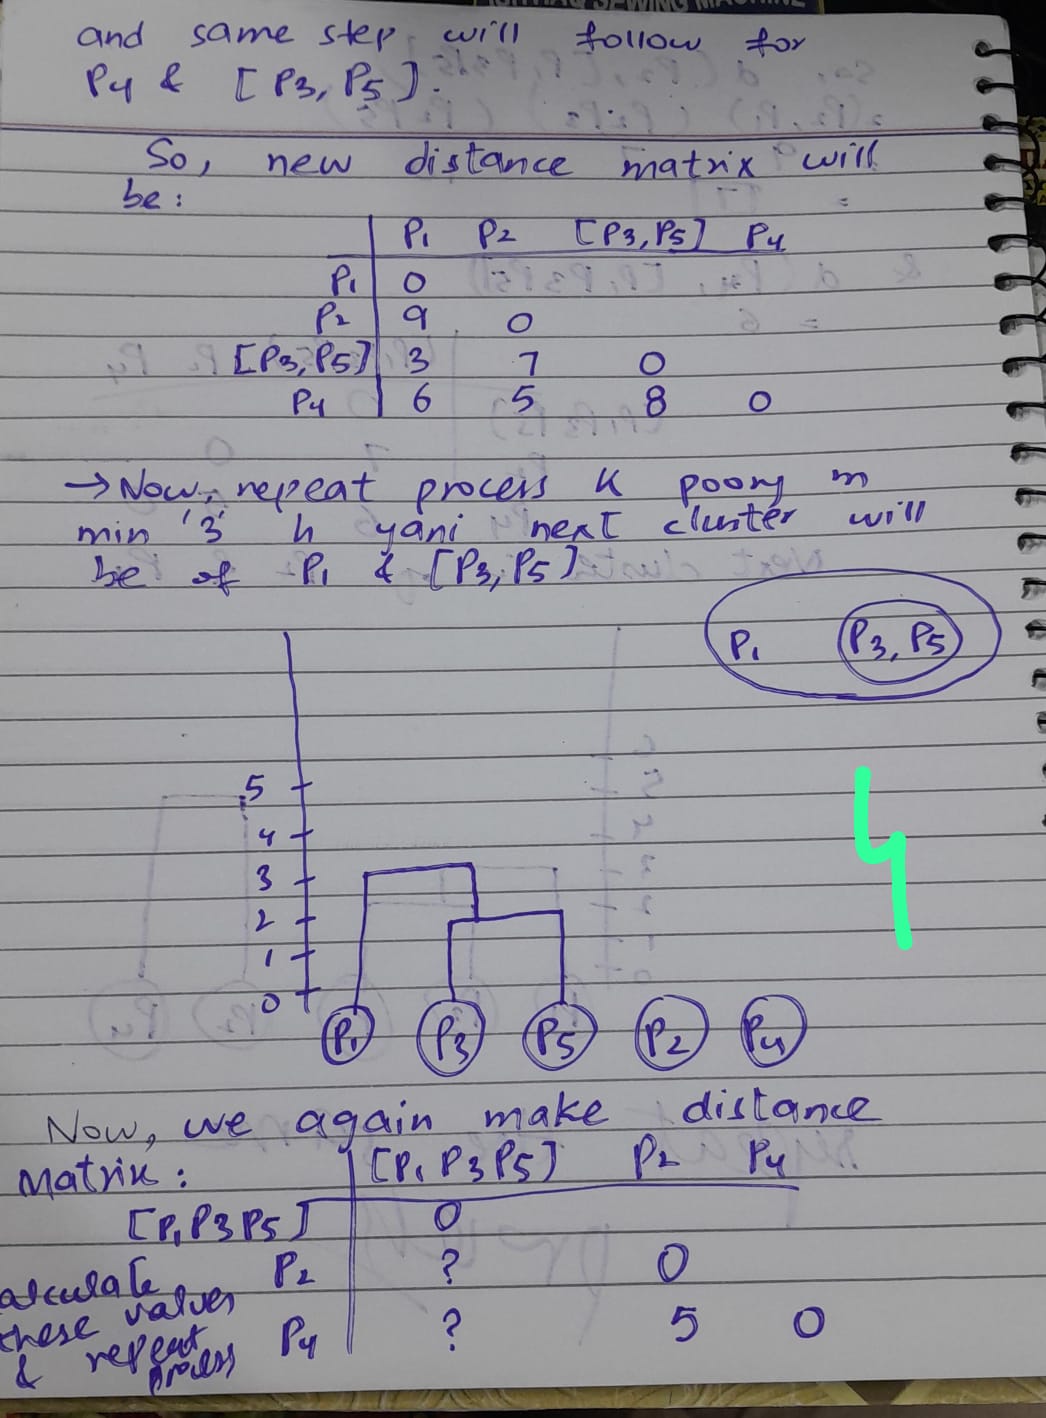 and same step will follow for
P4 & [P3, P5].
So, new distance matrix will
be:
P1 P2 [P3,P5] P4
P1 0
P2 9 0
[P3,P5] 3 7 0
P4 6 5 8 0
→ Now, repeat process k poory m
min '3' h yani next cluster will
be of P1 & [P3,P5]
P1 P3, P5
5
4
3
2
1
0
P1 P3 P5 P2 P4
4
Now, we again make distance
Matrix: [P1 P3 P5] P2 P4
[P1 P3 P5] 0
P2 ? 0
P4 ? 5 0
alculate
these values
& repeat
process